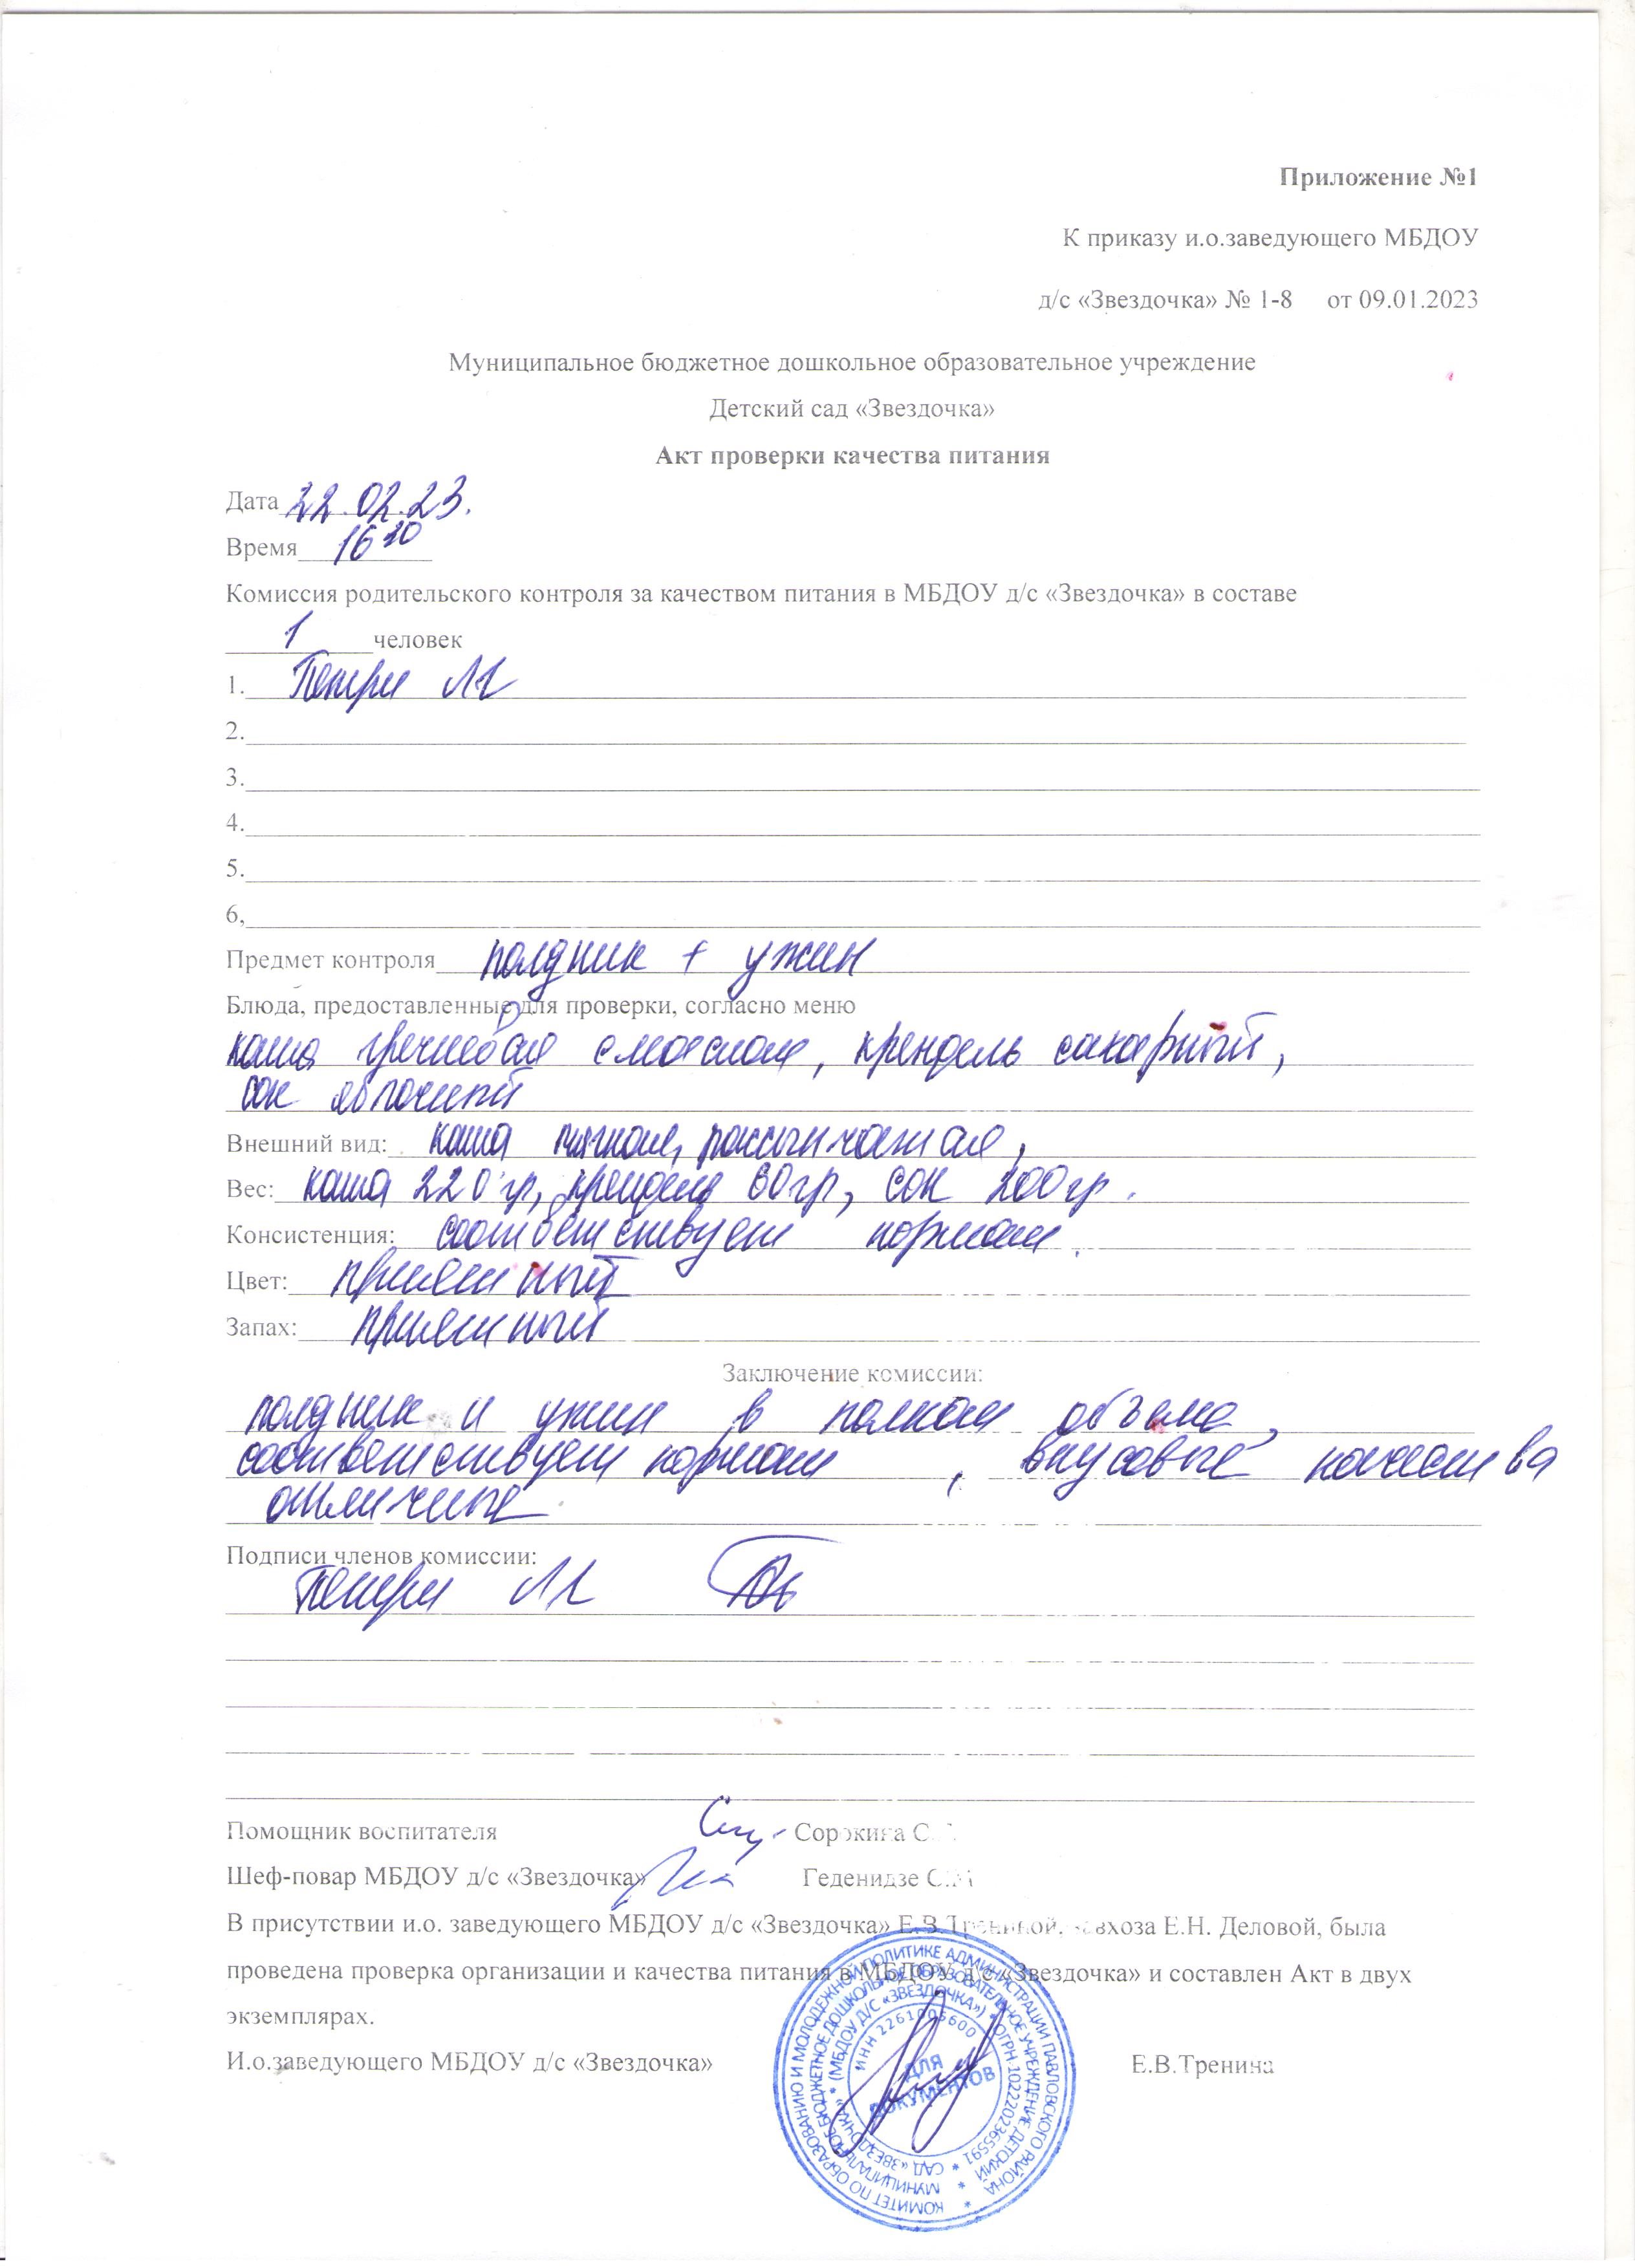 Приложение №1
К приказу и.о.заведующего МБДОУ
д/с «Звездочка» № 1-8 от 09.01.2023
Муниципальное бюджетное дошкольное образовательное учреждение
Детский сад «Звездочка»
Акт проверки качества питания
Дата 22.02.23.
Время 16 10
Комиссия родительского контроля за качеством питания в МБДОУ д/с «Звездочка» в составе
1 человек
1. Петри ЛГ
2.
3.
4.
5.
6,
Предмет контроля полдник + ужин
Блюда, предоставленные для проверки, согласно меню
каша гречневая с маслом, крендель сахарный,
сок яблочный
Внешний вид: каша мягкая, рассыпчатая,
Вес: каша 220 гр, крендель 60 гр, сок 200 гр.
Консистенция: соответствует нормам.
Цвет: приятный
Запах: приятный
Заключение комиссии:
полдник и ужин в полном объеме,
соответствует нормам, вкусовые качества
отличные
Подписи членов комиссии:
Петри ЛГ
Помощник воспитателя Сорокина С.
Шеф-повар МБДОУ д/с «Звездочка» Геденидзе С.М
В присутствии и.о. заведующего МБДОУ д/с «Звездочка» Е.В.Трениной, завхоза Е.Н. Деловой, была
проведена проверка организации и качества питания в МБДОУ д/с «Звездочка» и составлен Акт в двух
экземплярах.
И.о.заведующего МБДОУ д/с «Звездочка» Е.В.Тренина
КОМИТЕТ ПО ОБРАЗОВАНИЮ И МОЛОДЕЖНОЙ ПОЛИТИКЕ АДМИНИСТРАЦИИ ПАВЛОВСКОГО РАЙОНА *
МУНИЦИПАЛЬНОЕ БЮДЖЕТНОЕ ДОШКОЛЬНОЕ ОБРАЗОВАТЕЛЬНОЕ УЧРЕЖДЕНИЕ ДЕТСКИЙ *
САД «ЗВЕЗДОЧКА» * (МБДОУ Д/С «ЗВЕЗДОЧКА») * ОГРН 1022202365591 *
ИНН 2261005600
ДЛЯ
ДОКУМЕНТОВ